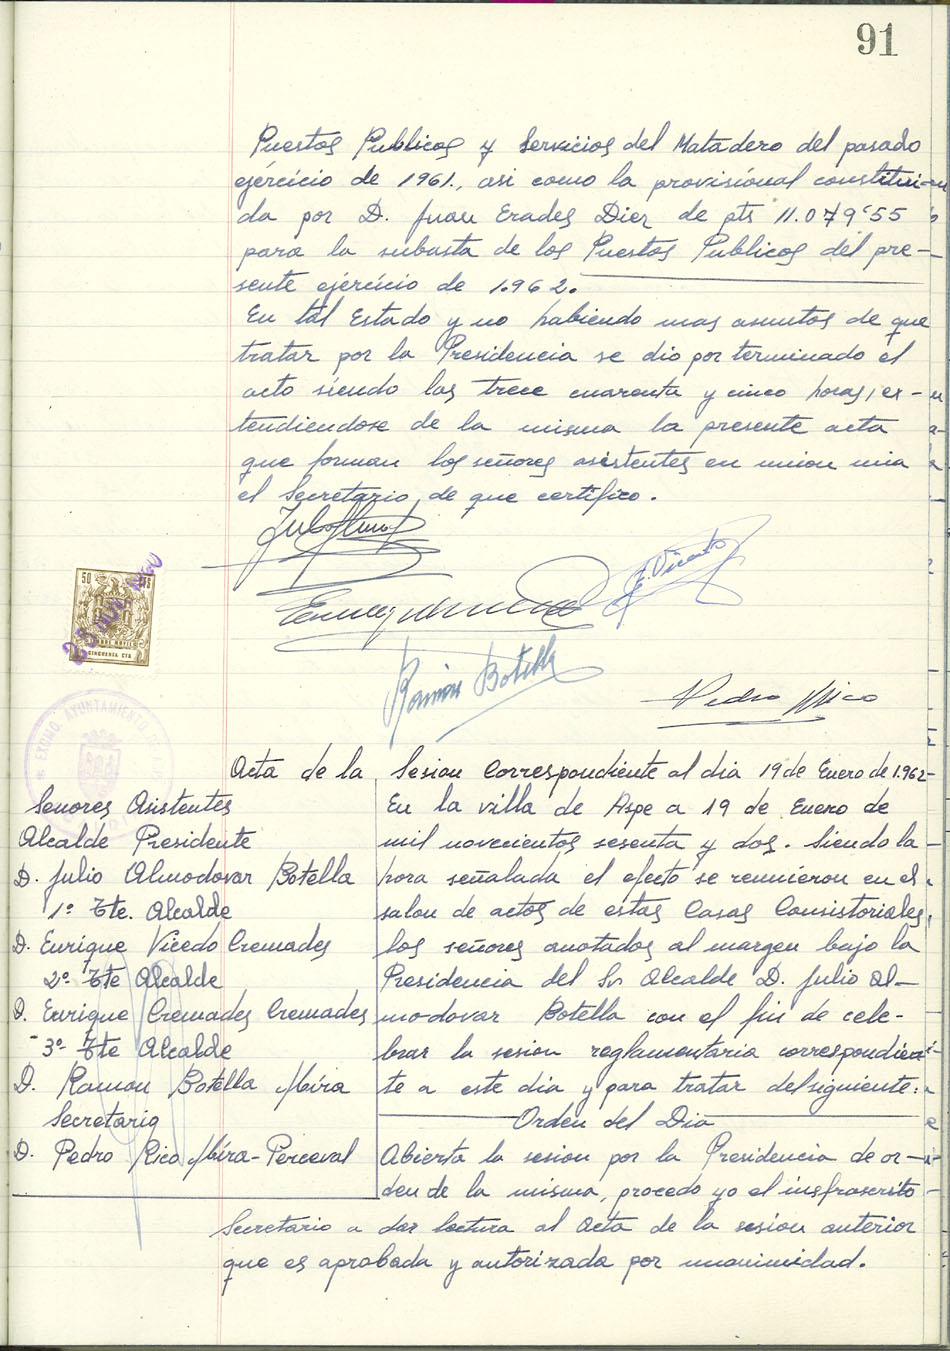 91
Puestos Publicos y Servicios del Matadero del pasado
ejercicio de 1961., asi como la provisional constitui-
da por D. Juan Erades Dier de pts 11.079'55
para la subasta de los Puestos Publicos del pre-
sente ejercicio de 1.962.
En tal Estado y no habiendo mas asuntos de que
tratar por la Presidencia se dio por terminado el
acto siendo las trece cuarenta y cinco horas, ex-
tendiendose de la misma la presente acta
que forman los señores asistentes en union mia
el Secretario, de que certifico.
E. Vicedo
Ramón Botella
Pedro Rico
50 CTS
CINCUENTA CTS
EXCMO. AYUNTAMIENTO DE
Acta de la Sesion Correspondiente al dia 19 de Enero de 1.962-
Señores Asistentes
Alcalde Presidente
D. Julio Almodovar Botella
1º Tte. Alcalde
D. Enrique Vicedo Cremades
2º Tte Alcalde
D. Enrique Cremades Cremades
3º Tte Alcalde
D. Ramon Botella Mira
Secretario
D. Pedro Rico Mira-Perceval
En la villa de Aspe a 19 de Enero de
mil novecientos sesenta y dos. Siendo la
hora señalada el efecto se reunieron en el
salon de actos de estas Casas Consistoriales,
los señores anotados al margen bajo la
Presidencia del Sr Alcalde D. Julio Al-
modovar Botella con el fin de cele-
brar la sesion reglamentaria correspondien-
te a este dia y para tratar del siguiente:
Orden del Dia
Abierta la sesion por la Presidencia de or-
den de la misma, procedo yo el insfrascrito
Secretario a dar lectura al acta de la sesion anterior
que es aprobada y autorizada por unanimidad.